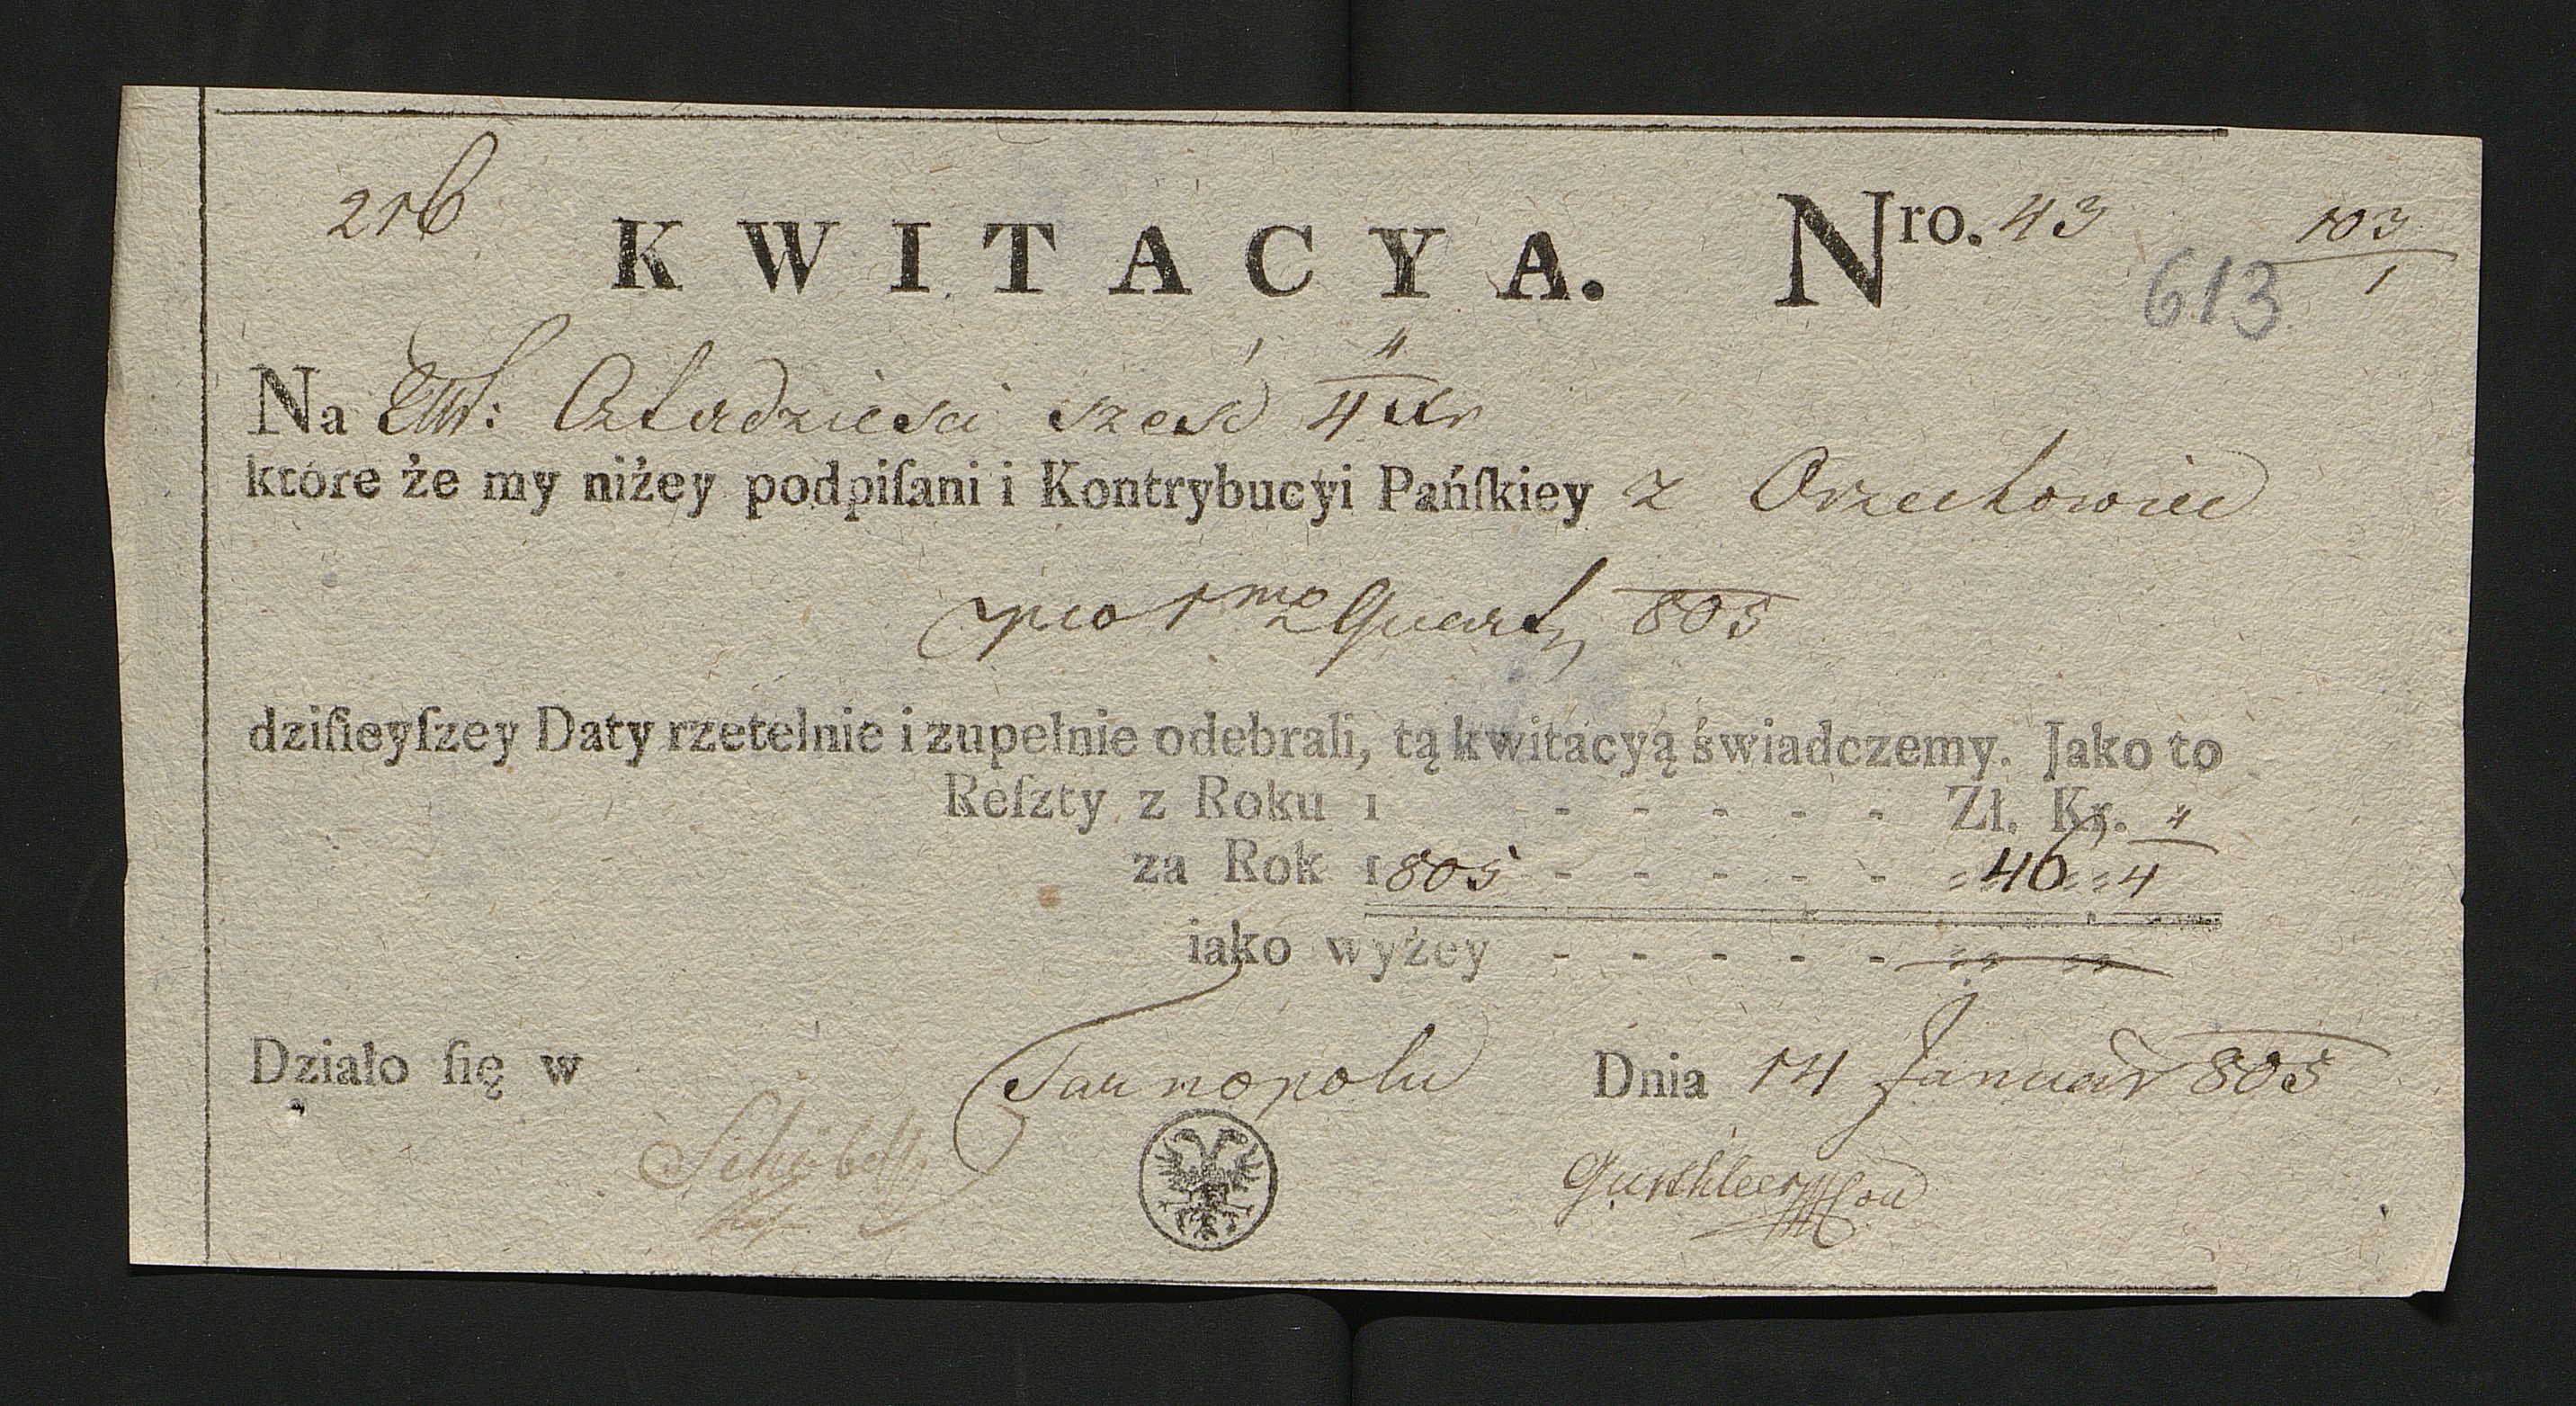 216
KWITACYA. Nro. 43
103
1
613
Na Czterdzieści sześć 4 Kr
które że my niżey podpiſani i Kontrybucyi Pańſkiey z Orzechowiec
pro 1mo Quart 805
dziſieyſzey Daty rzetelnie i zupełnie odebrali, tą kwitacyą świadczemy. Jako to
Reſzty z Roku 1 - - - - - Zł. Kr.
za Rok 1805 - - - - - 46 4
iako wyżey - - - - -
Działo ſię w Tarnopolu Dnia 14 Januar 805